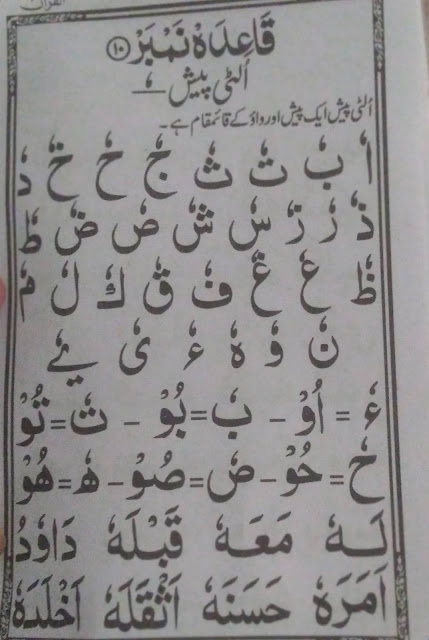 القرآن
قَاعِدَه نَمْبَر ١٠
اُلٹی پیش ــٗــ
اُلٹی پیش ایک پیش اور واؤ کے قائمقام ہے۔
اٗ بٗ تٗ ثٗ جٗ حٗ خٗ دٗ
ذٗ رٗ زٗ سٗ شٗ صٗ ضٗ طٗ
ظٗ عٗ غٗ فٗ قٗ كٗ لٗ مٗ
نٗ وٗ هٗ ءٗ یٗ ےٗ
ءٗ = اُوْ - بٗ = بُوْ - تٗ = تُوْ
حٗ = حُوْ - صٗ = صُوْ - هٗ = هُوْ
لَهٗ مَعَهٗ قَبْلَهٗ دَاوٗدُ
اَمَرَهٗ حَسَنَهٗ اَثْقَلَهٗ اَخْلَدَهٗ